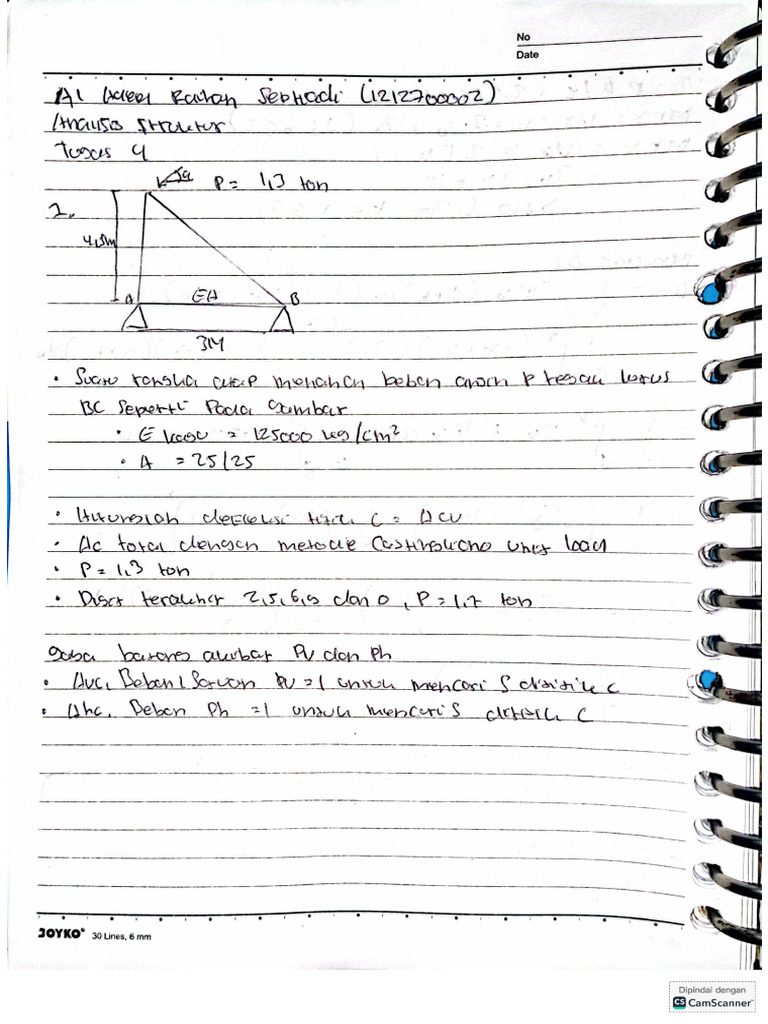 No
Date
(1212700002)
Analisa Struktur
Tugas 4
P = 1,3 ton
1.
4,5m
A
EA
B
3M
• Suatu rangka atap menahan beban angin P tegak lurus
BC Seperti Pada Gambar
• E kayu = 125000 kg/cm²
• A = 25/25
• Hitunglah defleksi titik C = ΔCV
• Δc total dengan metode unit load
• P = 1,3 ton
• Digit terakhir 2,5,6,9 dan 0, P = 1,7 ton
gaya batang akibat PV dan Ph
• ΔVC, Beban PV = 1 untuk mencari S dititik C
• Δhc, Beban Ph = 1 untuk mencari S dititik C
JOYKO® 30 Lines, 6 mm
Dipindai dengan
CS CamScanner